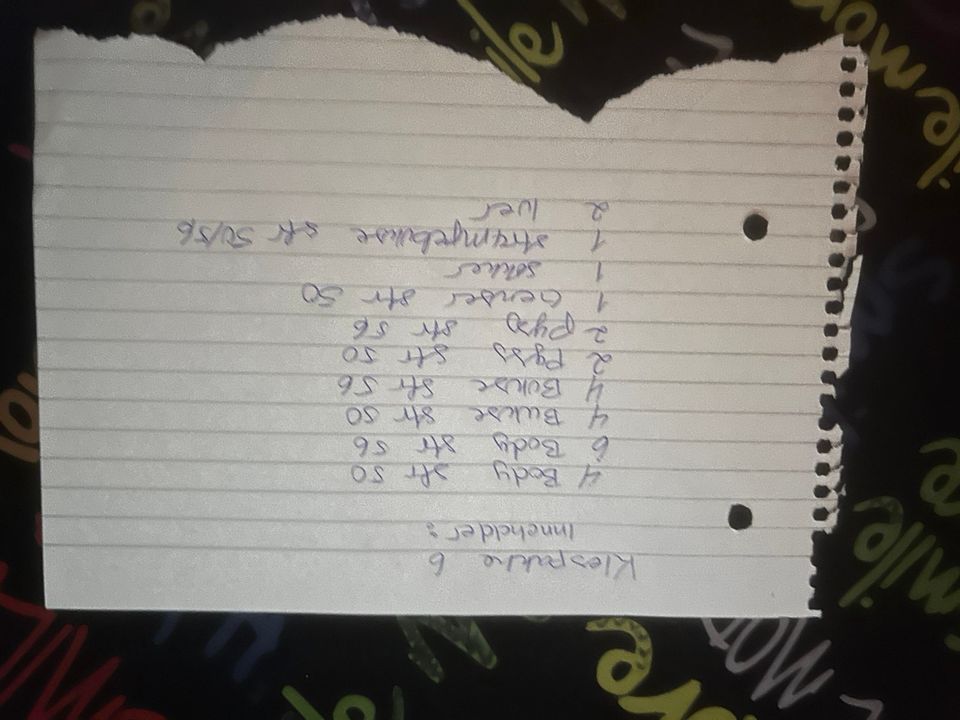 Klespakke 6
Inneholder:
4 Body str 50
6 Body str 56
4 Bukse str 50
4 Bukse str 56
2 Pyss str 50
2 Pyss str 56
1 Genser str 50
1 sokker
1 strømpebukse str 50/56
2 luer